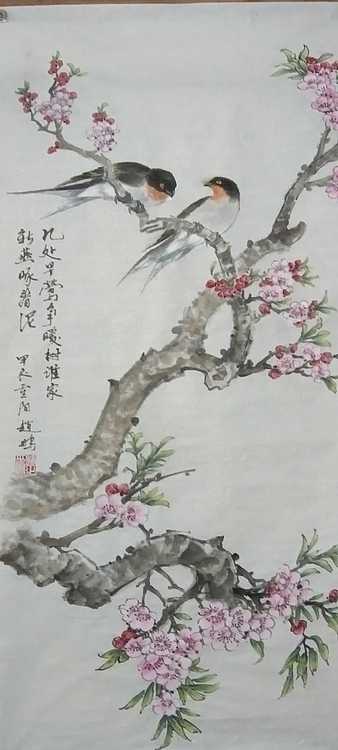 几处早莺争暖树谁家
新燕啄春泥
甲辰重阳赵